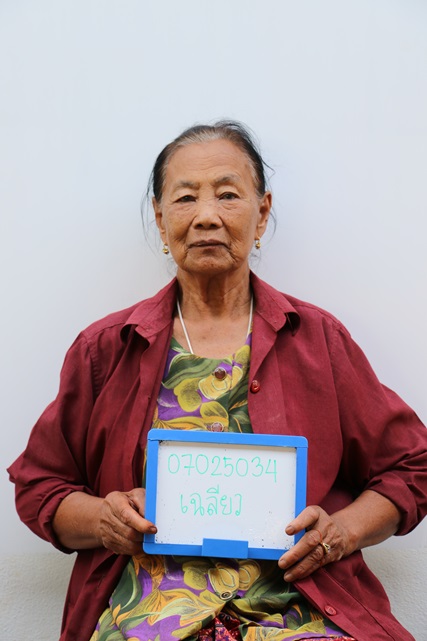 07025034
เฉลียว